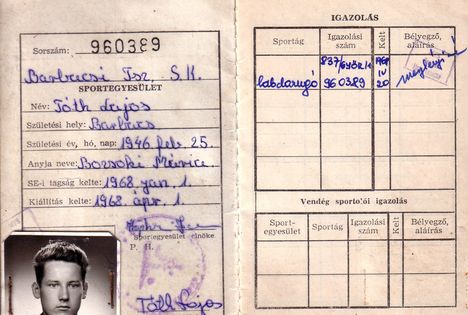 Sorszám: 960389
Barbacsi Tsz. S.K.
SPORTEGYESÜLET
Név: Tóth Lajos
Születési hely: Barbacs
Születési év, hó, nap: 1946 feb. 25.
Anyja neve: Bozsoki Mária
SE-i tagság kelte: 1968 jan. 1.
Kiállítás kelte: 1968. ápr. 1.
Sportegyesület elnöke
P. H.
Tóth Lajos
IGAZOLÁS
Sportág Igazolási szám Kelt Bélyegző, aláírás
labdarugó 960389 IV 20
Vendég sportolói igazolás
Sport-egyesület Sportág Igazolási szám Kelt Bélyegző, aláírás